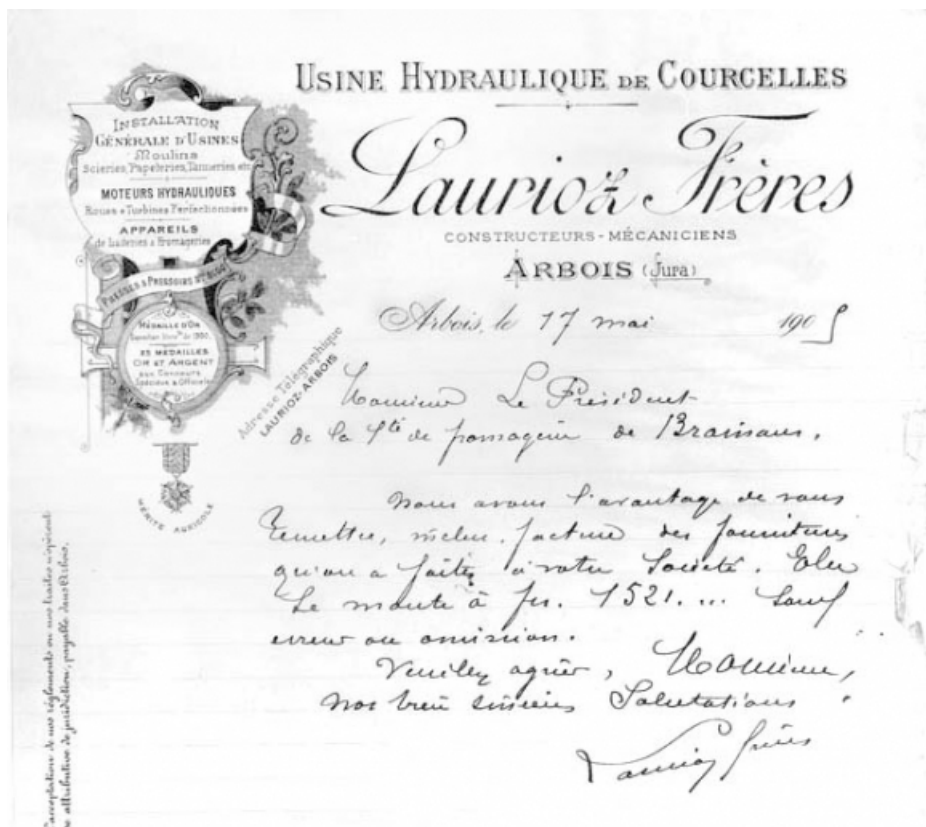 USINE HYDRAULIQUE DE COURCELLES
Laurioz Frères
CONSTRUCTEURS-MÉCANICIENS
ARBOIS (Jura)
INSTALLATION
GÉNÉRALE D'USINES
Moulins
Scieries, Papeteries, Tanneries, etc
MOTEURS HYDRAULIQUES
Roues & Turbines Perfectionnées
APPAREILS
de Laiteries & Fromageries
PRESSES & PRESSOIRS
MÉDAILLE D'OR
de 1900
25 MÉDAILLES
OR ET ARGENT
aux Concours
Spéciaux & Officiels
MÉRITE AGRICOLE
Adresse Télégraphique
LAURIOZ-ARBOIS
Arbois, le 17 mai 1905
Monsieur Le Président
de la Sté de fromagerie de Brainans.
Nous avons l'avantage de vous
remettre, inclus, facture des fournitures
qu'on a faites à votre Société. Elle
se monte à frs. 1521. ... Sauf
erreur ou omission.
Veuillez agréer, Monsieur,
nos bien sincères Salutations.
Laurioz frères
L'acceptation de nos règlements ou nos traites n'opèrent
attributive de juridiction, payable dans Arbois.